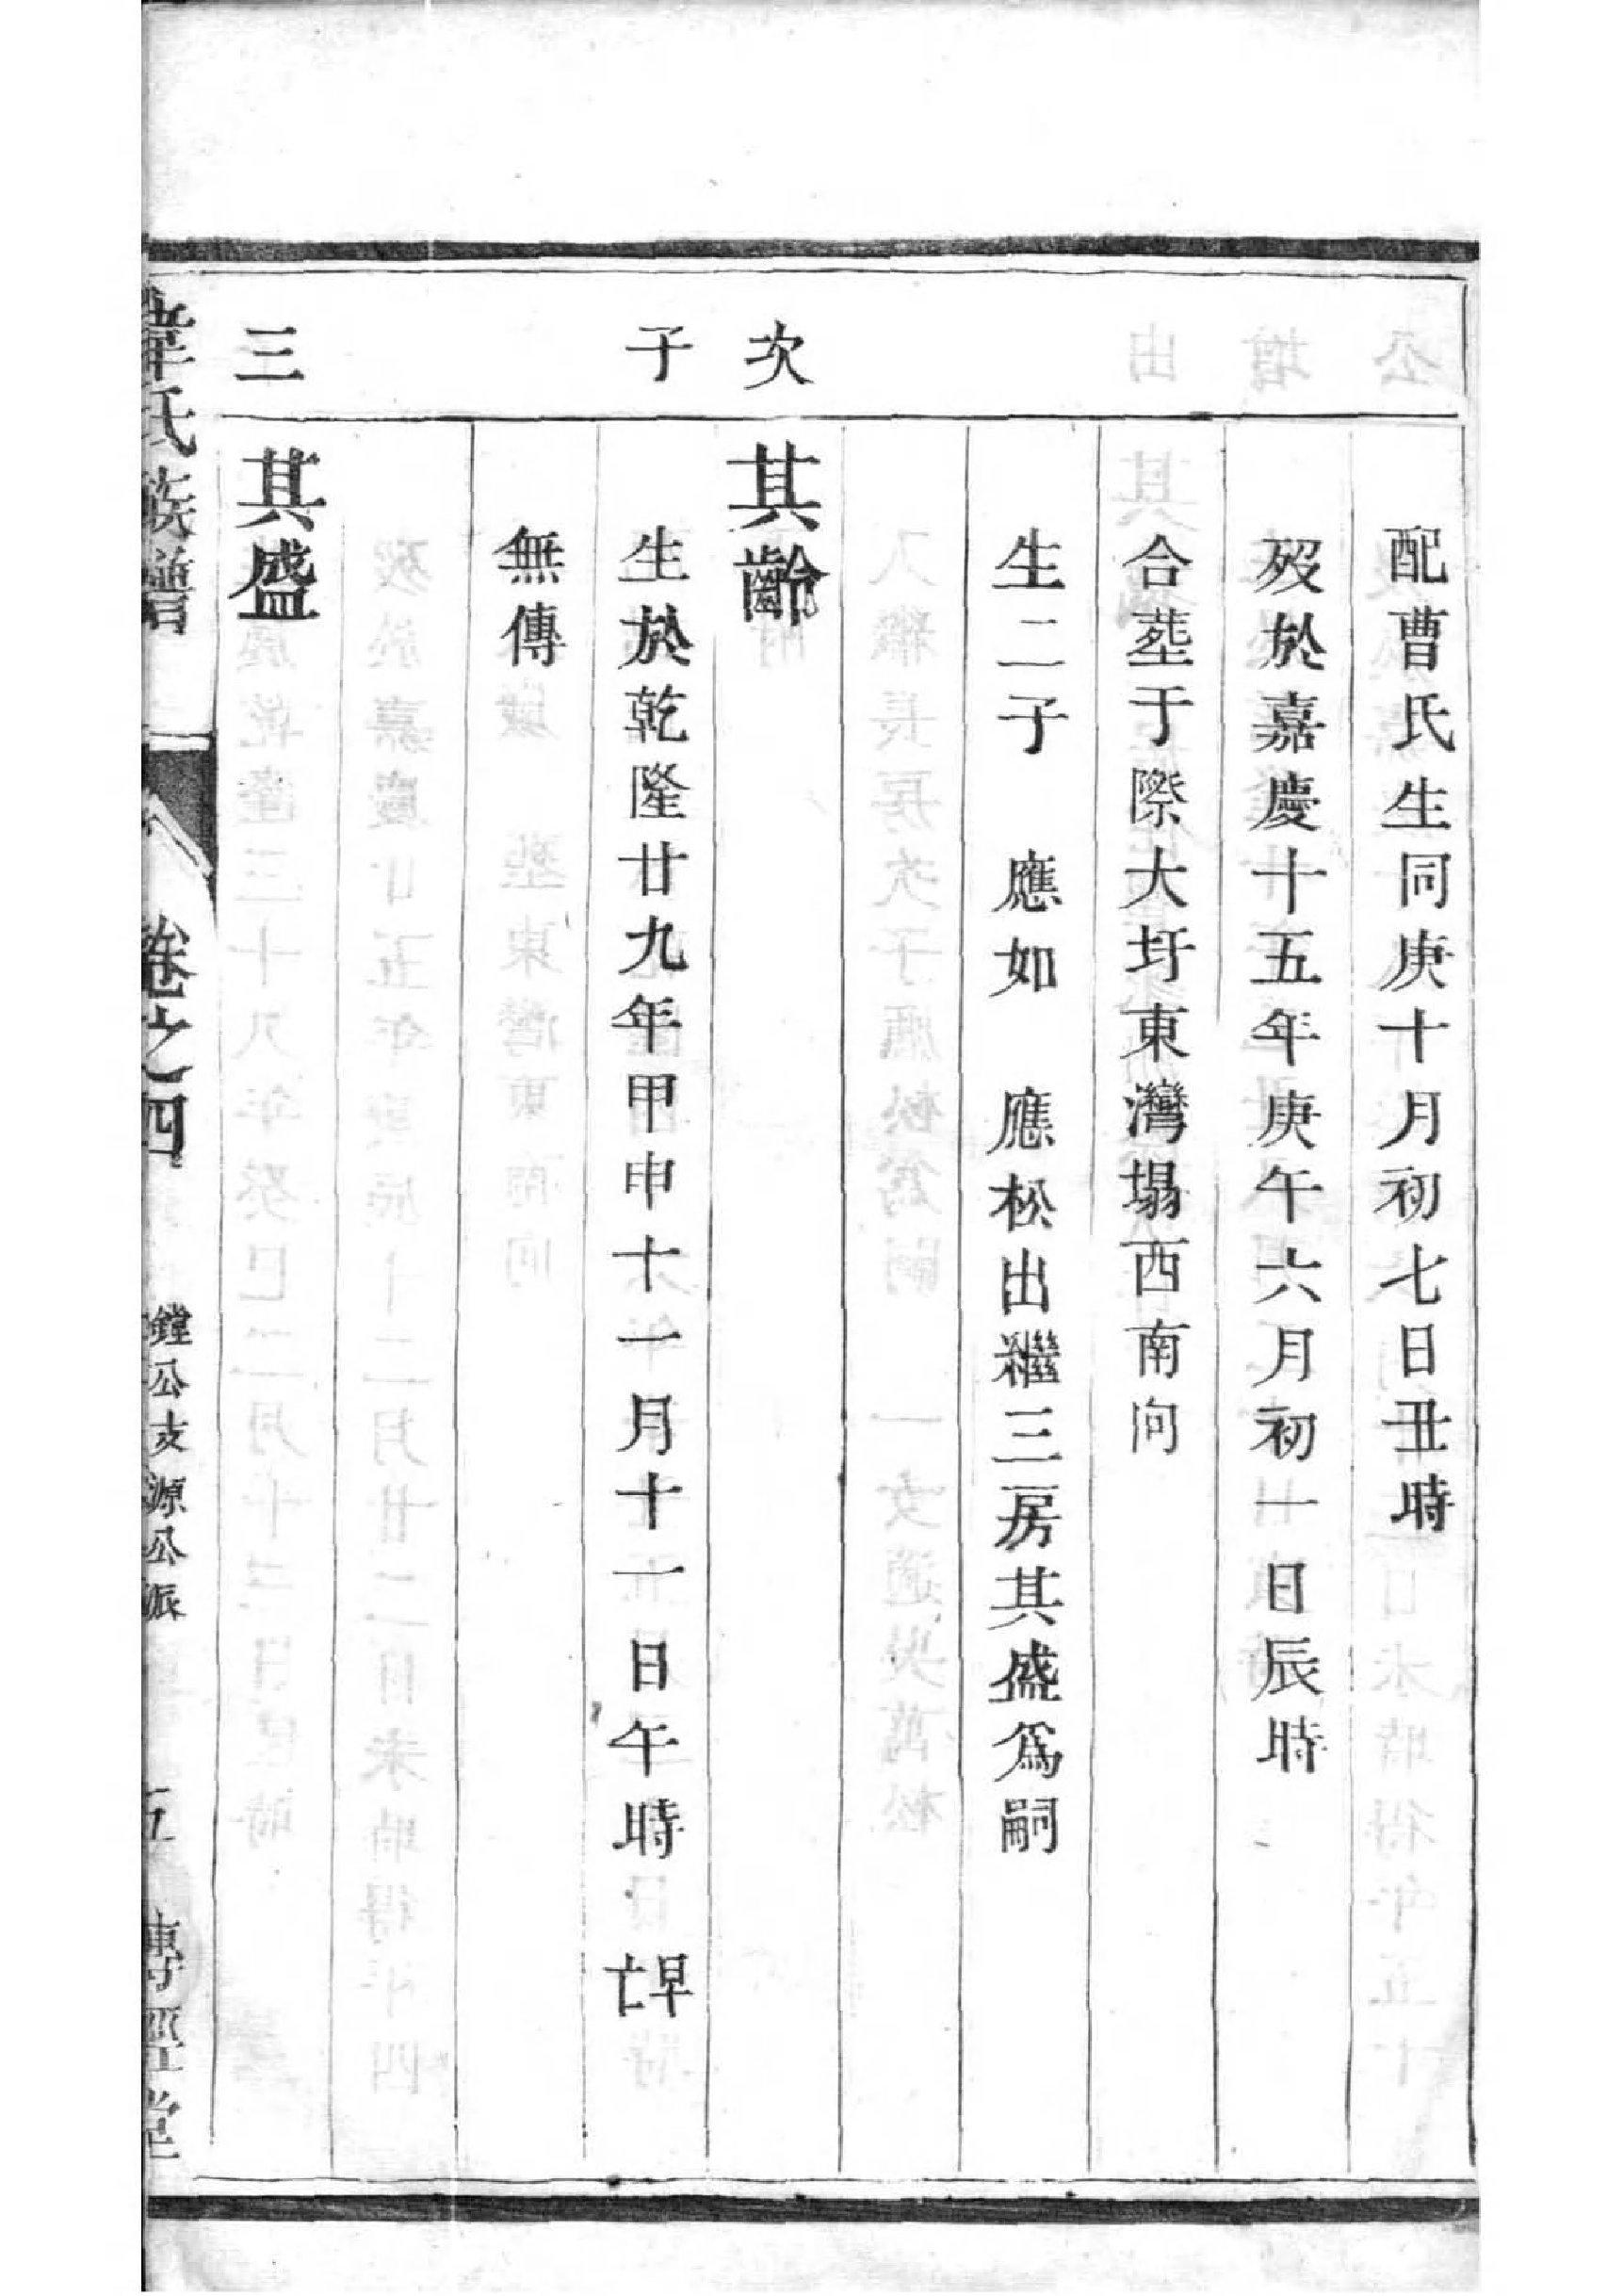 配曹氏生同庚十月初七日丑時
歿於嘉慶十五年庚午六月初一日辰時
合塟于際大圩東灣塌西南向
生二子 應如 應松出繼三房其盛爲嗣
次
其齡
子
生於乾隆廿九年甲申十一月十一日午時 早亡
無傳
三
其盛
韋氏族譜 卷之四 鏜公支源公派 五 傳經堂